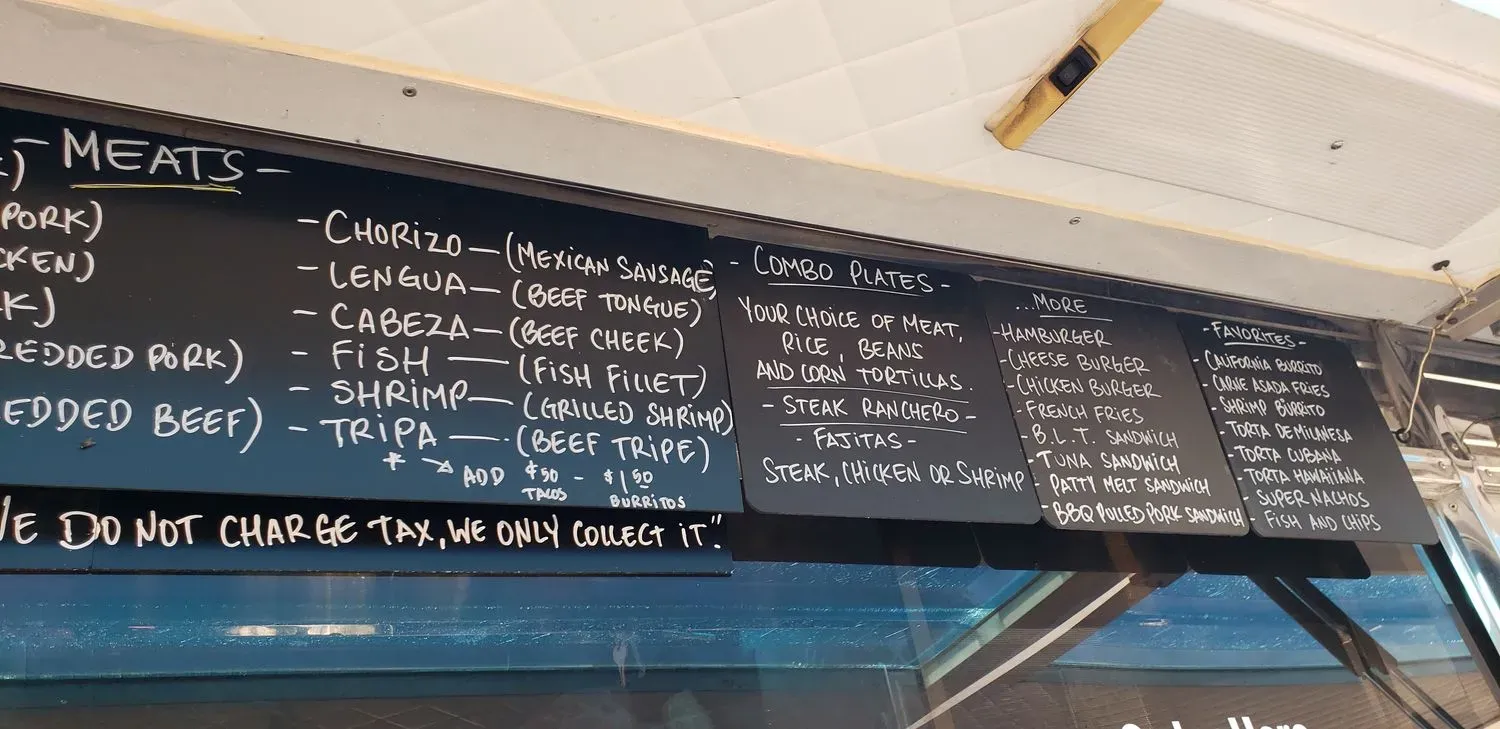 - MEATS -
)
PORK)
CKEN)
K)
REDDED PORK)
EDDED BEEF)
- CHORIZO - (MEXICAN SAUSAGE)
- LENGUA - (BEEF TONGUE)
- CABEZA - (BEEF CHEEK)
- FISH - (FISH FILLET)
- SHRIMP - (GRILLED SHRIMP)
- TRIPA - (BEEF TRIPE)
* → ADD $50 - $1.50
TACOS BURRITOS
E DO NOT CHARGE TAX, WE ONLY COLLECT IT".
- COMBO PLATES -
YOUR CHOICE OF MEAT,
RICE, BEANS
AND CORN TORTILLAS.
- STEAK RANCHERO -
- FAJITAS -
STEAK, CHICKEN OR SHRIMP
...MORE
- HAMBURGER
- CHEESE BURGER
- CHICKEN BURGER
- FRENCH FRIES
- B.L.T. SANDWICH
- TUNA SANDWICH
- PATTY MELT SANDWICH
- BBQ PULLED PORK SANDWICH
- FAVORITES -
- CALIFORNIA BURRITO
- CARNE ASADA FRIES
- SHRIMP BURRITO
- TORTA DE MILANESA
- TORTA CUBANA
- TORTA HAWAIIANA
- SUPER NACHOS
- FISH AND CHIPS
Here